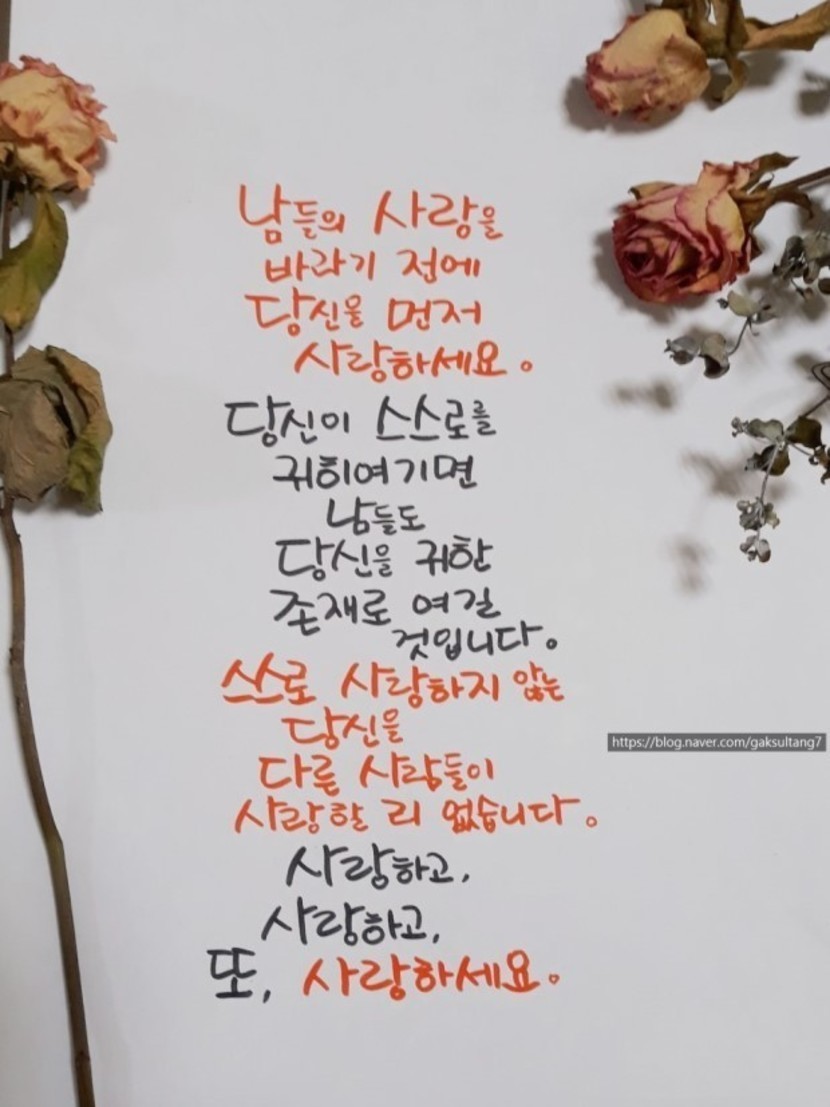 남들의 사랑을
바라기 전에
당신을 먼저
사랑하세요.
당신이 스스로를
귀히여기면
남들도
당신을 귀한
존재로 여길
것입니다.
스스로 사랑하지 않는
당신을
https://blog.naver.com/gaksultang7
다른 사람들이
사랑할 리 없습니다.
사랑하고,
사랑하고,
또, 사랑하세요.